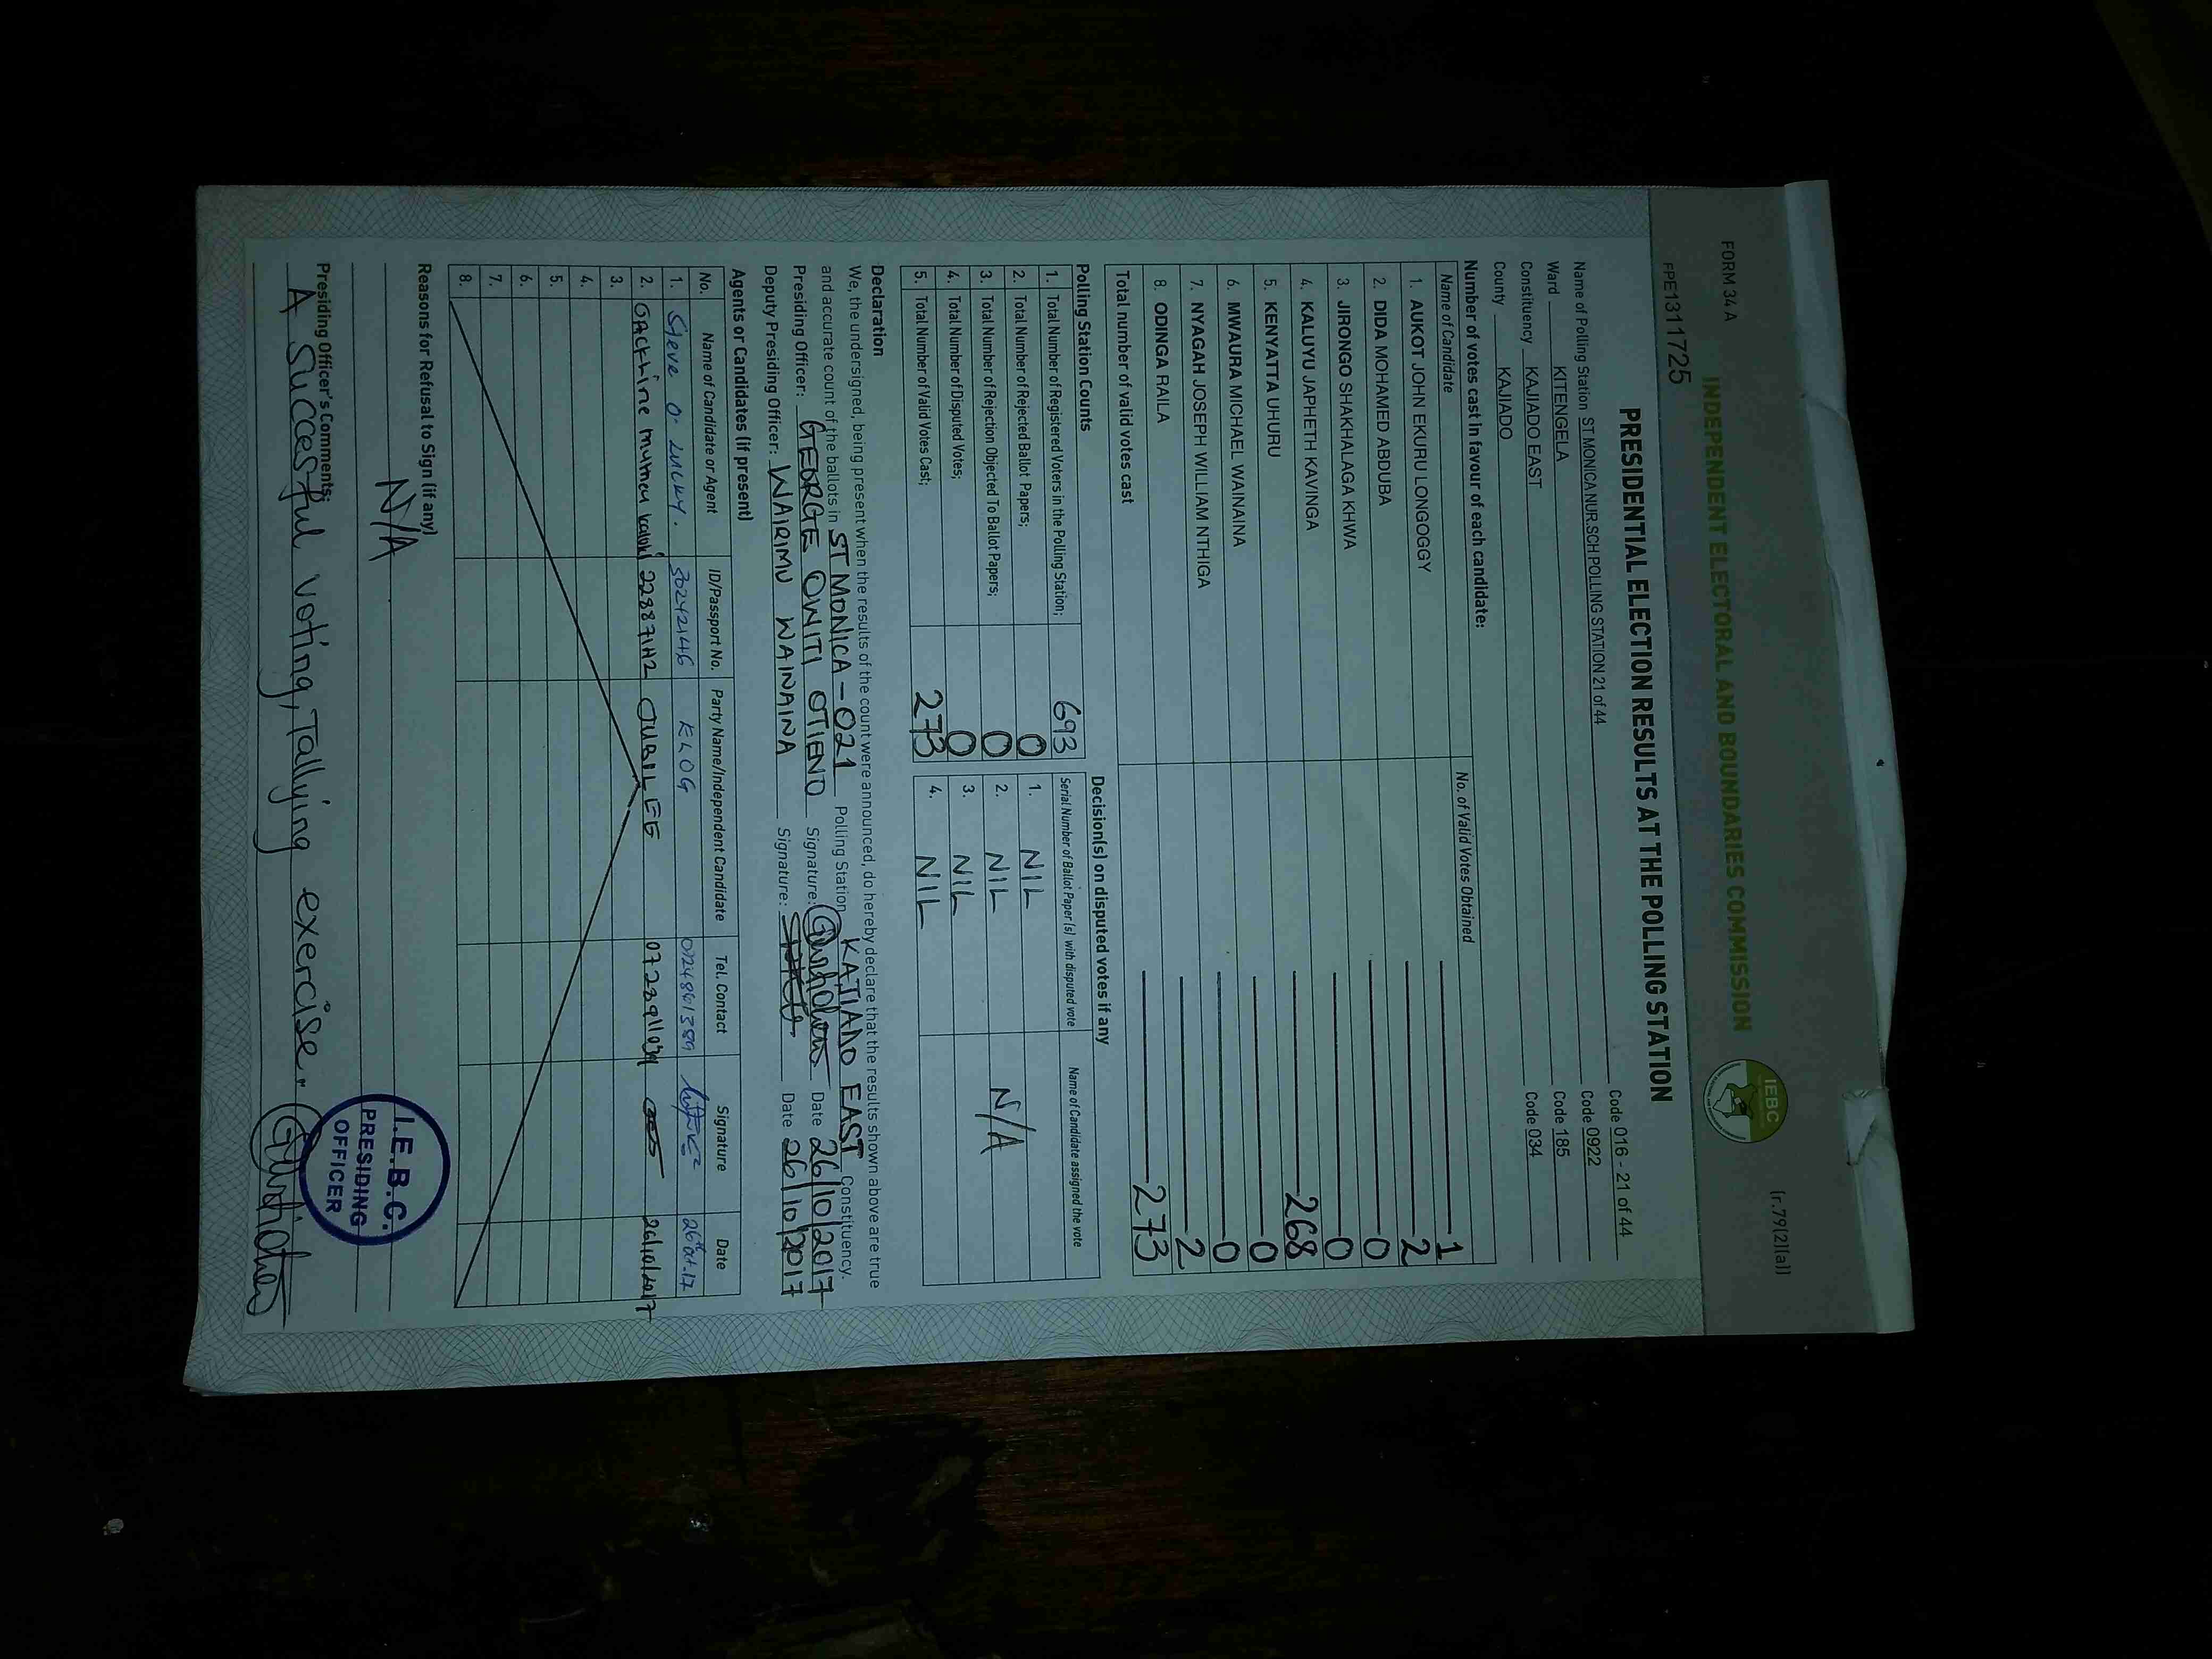 FORM 34 A
(r.79(2)(a))
INDEPENDENT ELECTORAL AND BOUNDARIES COMMISSION
IEBC
FPE1311725
PRESIDENTIAL ELECTION RESULTS AT THE POLLING STATION
Name of Polling Station ST MONICA NUR.SCH POLLING STATION 21 of 44 Code 016 - 21 of 44
Ward KITENGELA Code 0922
Constituency KAJIADO EAST Code 185
County KAJIADO Code 034
Number of votes cast in favour of each candidate:
Name of Candidate No. of Valid Votes Obtained
1. AUKOT JOHN EKURU LONGOGGY 1
2. DIDA MOHAMED ABDUBA 2
3. JIRONGO SHAKHALAGA KHWA 0
4. KALUYU JAPHETH KAVINGA 0
5. KENYATTA UHURU 268
6. MWAURA MICHAEL WAINAINA 0
7. NYAGAH JOSEPH WILLIAM NTHIGA 0
8. ODINGA RAILA 2
Total number of valid votes cast 273
Polling Station Counts
1. Total Number of Registered Voters in the Polling Station; 693
2. Total Number of Rejected Ballot Papers; 0
3. Total Number of Rejection Objected To Ballot Papers; 0
4. Total Number of Disputed Votes; 0
5. Total Number of Valid Votes Cast; 273
Decision(s) on disputed votes if any
Serial Number of Ballot Paper (s) with disputed vote Name of Candidate assigned the vote
1. NIL
2. NIL N/A
3. NIL
4. NIL
Declaration
We, the undersigned, being present when the results of the count were announced, do hereby declare that the results shown above are true
and accurate count of the ballots in ST MONICA - 021 Polling Station KAJIADO EAST Constituency.
Presiding Officer: GEORGE OWITI OTIENO Signature: Date 26/10/2017
Deputy Presiding Officer: WAIRIMU WAINAINA Signature: Date 26/10/2017
Agents or Candidates (if present)
No. Name of Candidate or Agent ID/Passport No. Party Name/Independent Candidate Tel. Contact Signature Date
1. Steve O. Lucky. 30242146 ELOG 26th Oct. 17
2. 22887142 JUBILEE 26/10/2017
3.
4.
5.
6.
7.
8.
Reasons for Refusal to Sign (if any)
N/A
Presiding Officer's Comments:
A Successful voting, Tallying exercise.
I.E.B.C.
PRESIDING
OFFICER